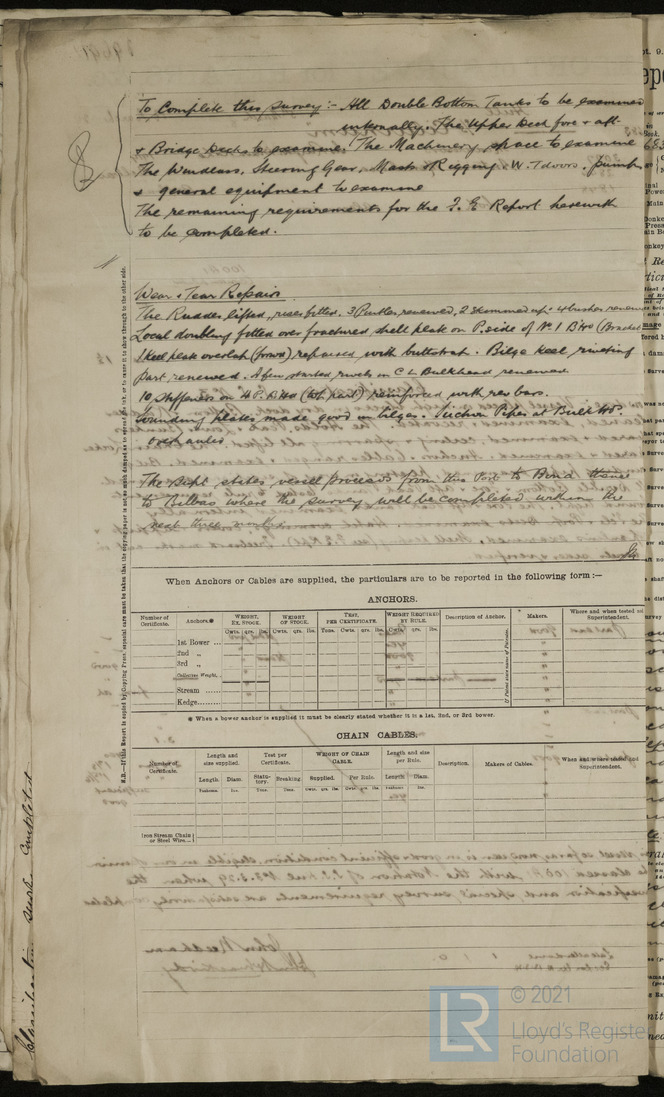 To Complete this survey :- All Double Bottom Tanks to be examined
internally. The Upper Deck fore & aft
& Bridge Decks to examine. The Machinery space to examine
The Windlass, Steering Gear, Masts & Rigging, W.T doors, pumps
& general equipment to examine
The remaining requirements for the Report herewith
to be completed.
Wear & Tear Repairs
The Rudder lifted, refitted. 3 Pintles renewed, 2 skimmed up & 4 bushes renewed
Local doubling fitted over fractured shell plate on P. side of No 1 BHd (Bracket
1 Keel plate overlap (forwd) repaired with buttstrap. Bilge Keel riveting
part renewed. A few started rivets in C L Bulkhead renewed.
10 Stiffeners on A.P. BHd (part) reinforced with rev bars.
Sounding plates made good in bilges. Suction Pipes at Bulk Hds
overhauled.
The Supt states vessel proceeds from this Port to Bona thence
to Bilbao where the survey will be completed within the
next three weeks.
N.B.—If this Report is copied by Copying Press, special care must be taken that the copying paper is not so much damped as to the ink, or to cause it to show through to the other side.
When Anchors or Cables are supplied, the particulars are to be reported in the following form :—
ANCHORS.
Number of Certificate. Anchors.* WEIGHT, EX. STOCK. WEIGHT OF STOCK. TEST, PER CERTIFICATE. WEIGHT REQUIRED BY RULE. Description of Anchor. Makers. Where and when tested and Superintendent.
Cwts. qrs. lbs. Cwts. qrs. lbs. Tons. Cwts. qrs. lbs. Cwts. qrs. lbs.
1st Bower ...
2nd „
3rd „
Collective Weight.
Stream ......
Kedge........
If Patent state name of Patentee.
* When a bower anchor is supplied it must be clearly stated whether it is a 1st, 2nd, or 3rd bower.
CHAIN CABLES.
Number of Certificate. Length and size supplied. Test per Certificate. WEIGHT OF CHAIN CABLE. Length and size per Rule. Description. Makers of Cables. When and where tested and Superintendent.
Length. Diam. Statutory. Breaking. Supplied. Per Rule. Length. Diam.
Fathoms. Ins. Tons. Tons. Cwts. qrs. lbs. Cwts. qrs. lbs. Fathoms. Ins.
Iron Stream Chain or Steel Wire
Classification completed
LR
© 2021
Lloyd's Register
Foundation